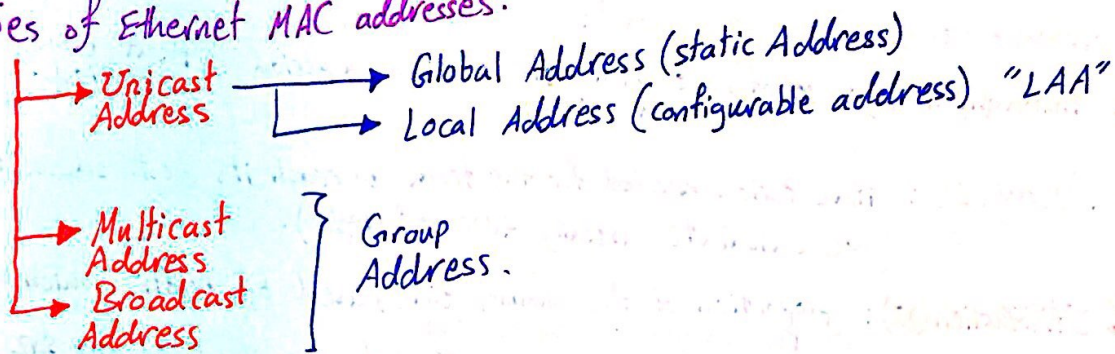 of Ethernet MAC addresses.
Unicast
Address
Global Address (static Address)
Local Address (configurable address) "LAA"
Multicast
Address
Broadcast
Address
Group
Address.